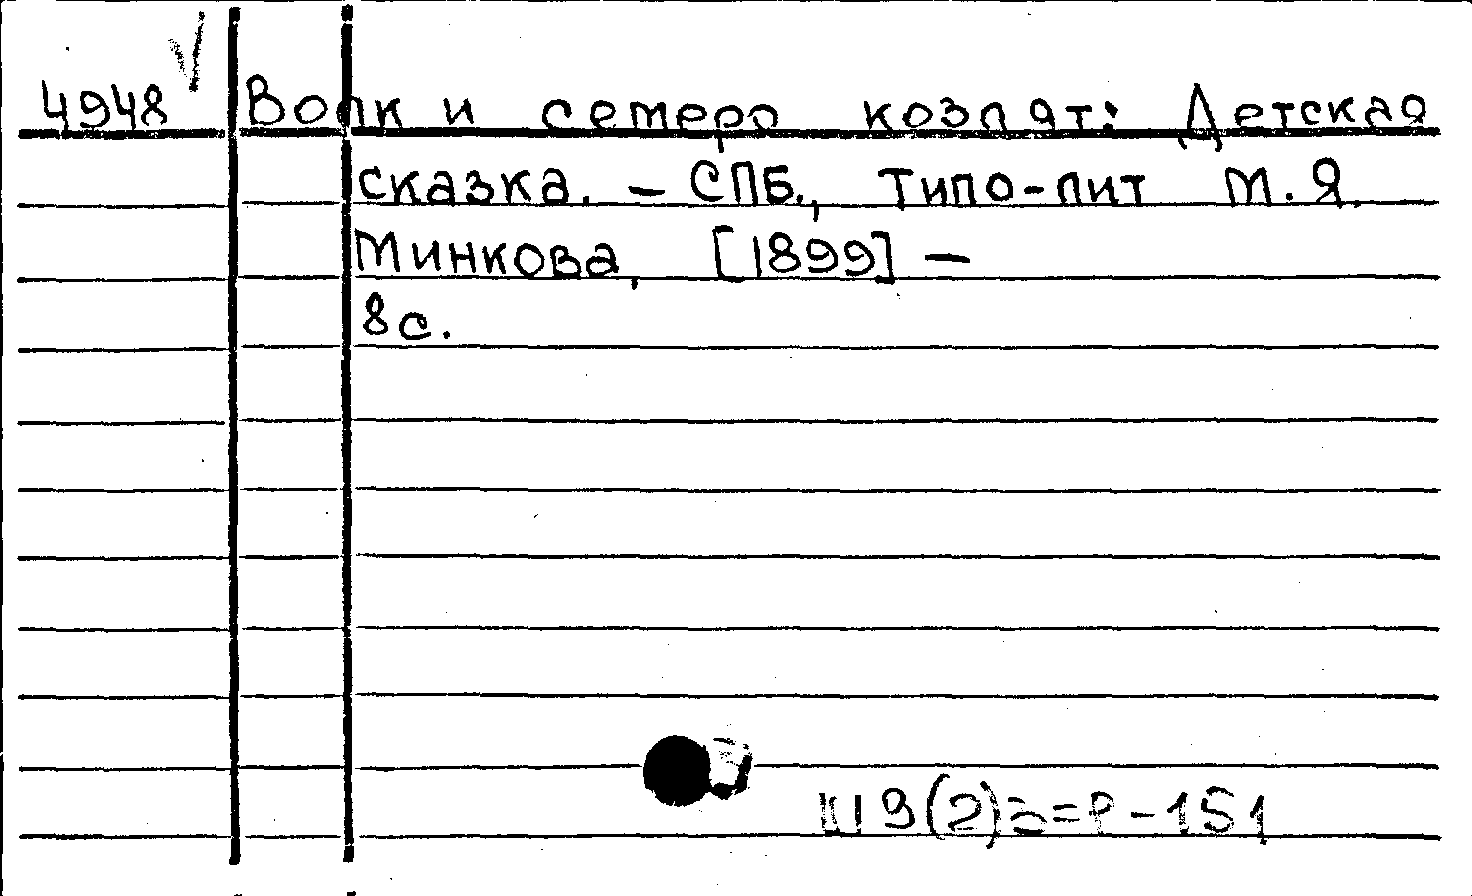 4948 Волк и семеро козлят: Детская
сказка. – СПБ., Типо-лит М.Я.
Минкова, [1899] –
8с.
Ш9(2)=Р-151